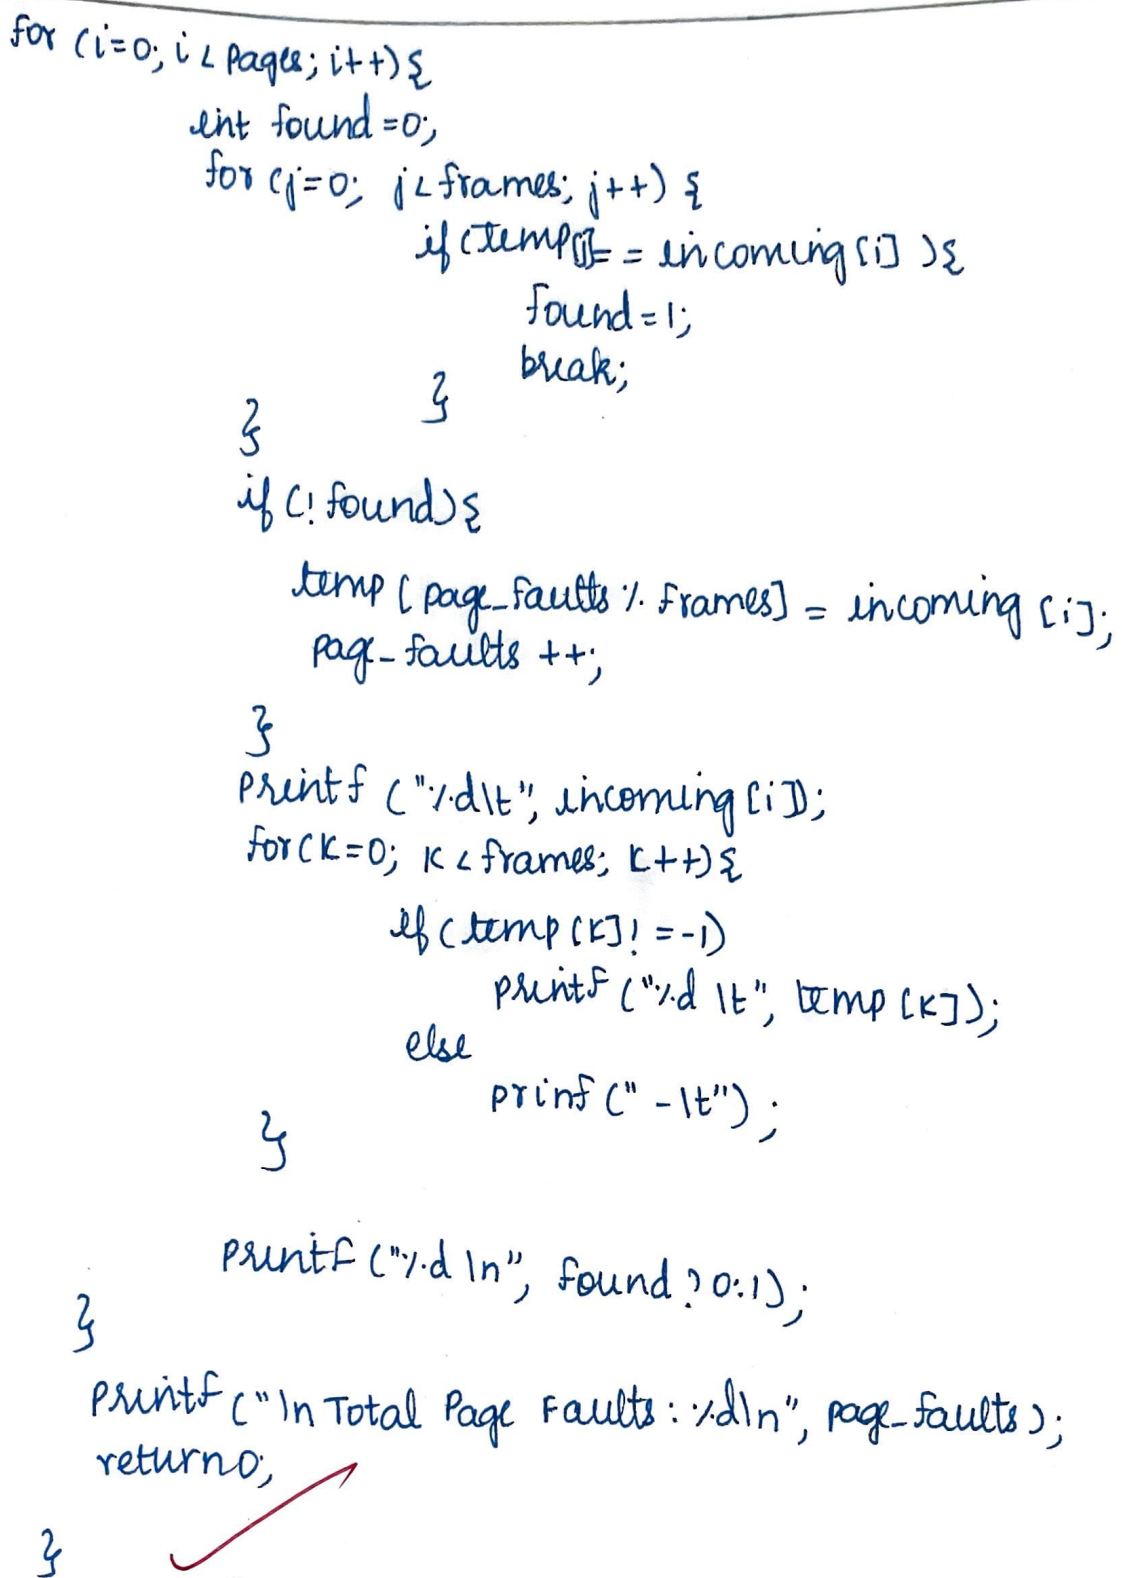 for (i=0; i < pages; i++){
int found=0;
for (j=0; j<frames; j++) {
if (temp[j]== incoming[i] ){
found=1;
break;
}
}
if (! found){
temp [page_faults % frames] = incoming [i];
page_faults ++;
}
printf ("%d\t", incoming [i]);
for(k=0; k < frames; k++){
if (temp [k]! =-1)
printf ("%d \t", temp [k]);
else
prinf (" -\t") ;
}
printf ("%d \n", found ? 0:1);
}
printf ("\n Total Page Faults: %d\n", page_faults);
return0;
}